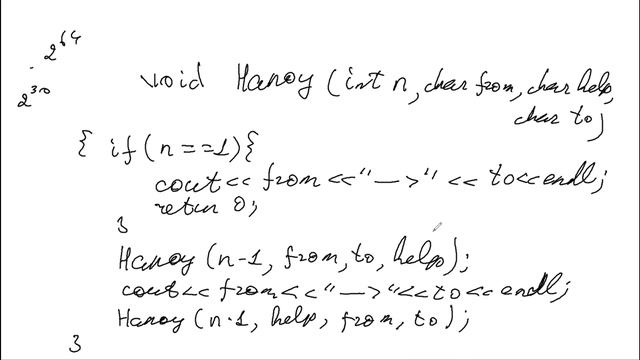 2^64
2^30
void Hanoy (int n, char from, char help,
char to)
{ if (n == 1) {
cout << from << "—>" << to << endl;
retun 0;
}
Hanoy (n-1, from, to, help);
cout << from << "—>" << to << endl;
Hanoy (n-1, help, from, to);
}